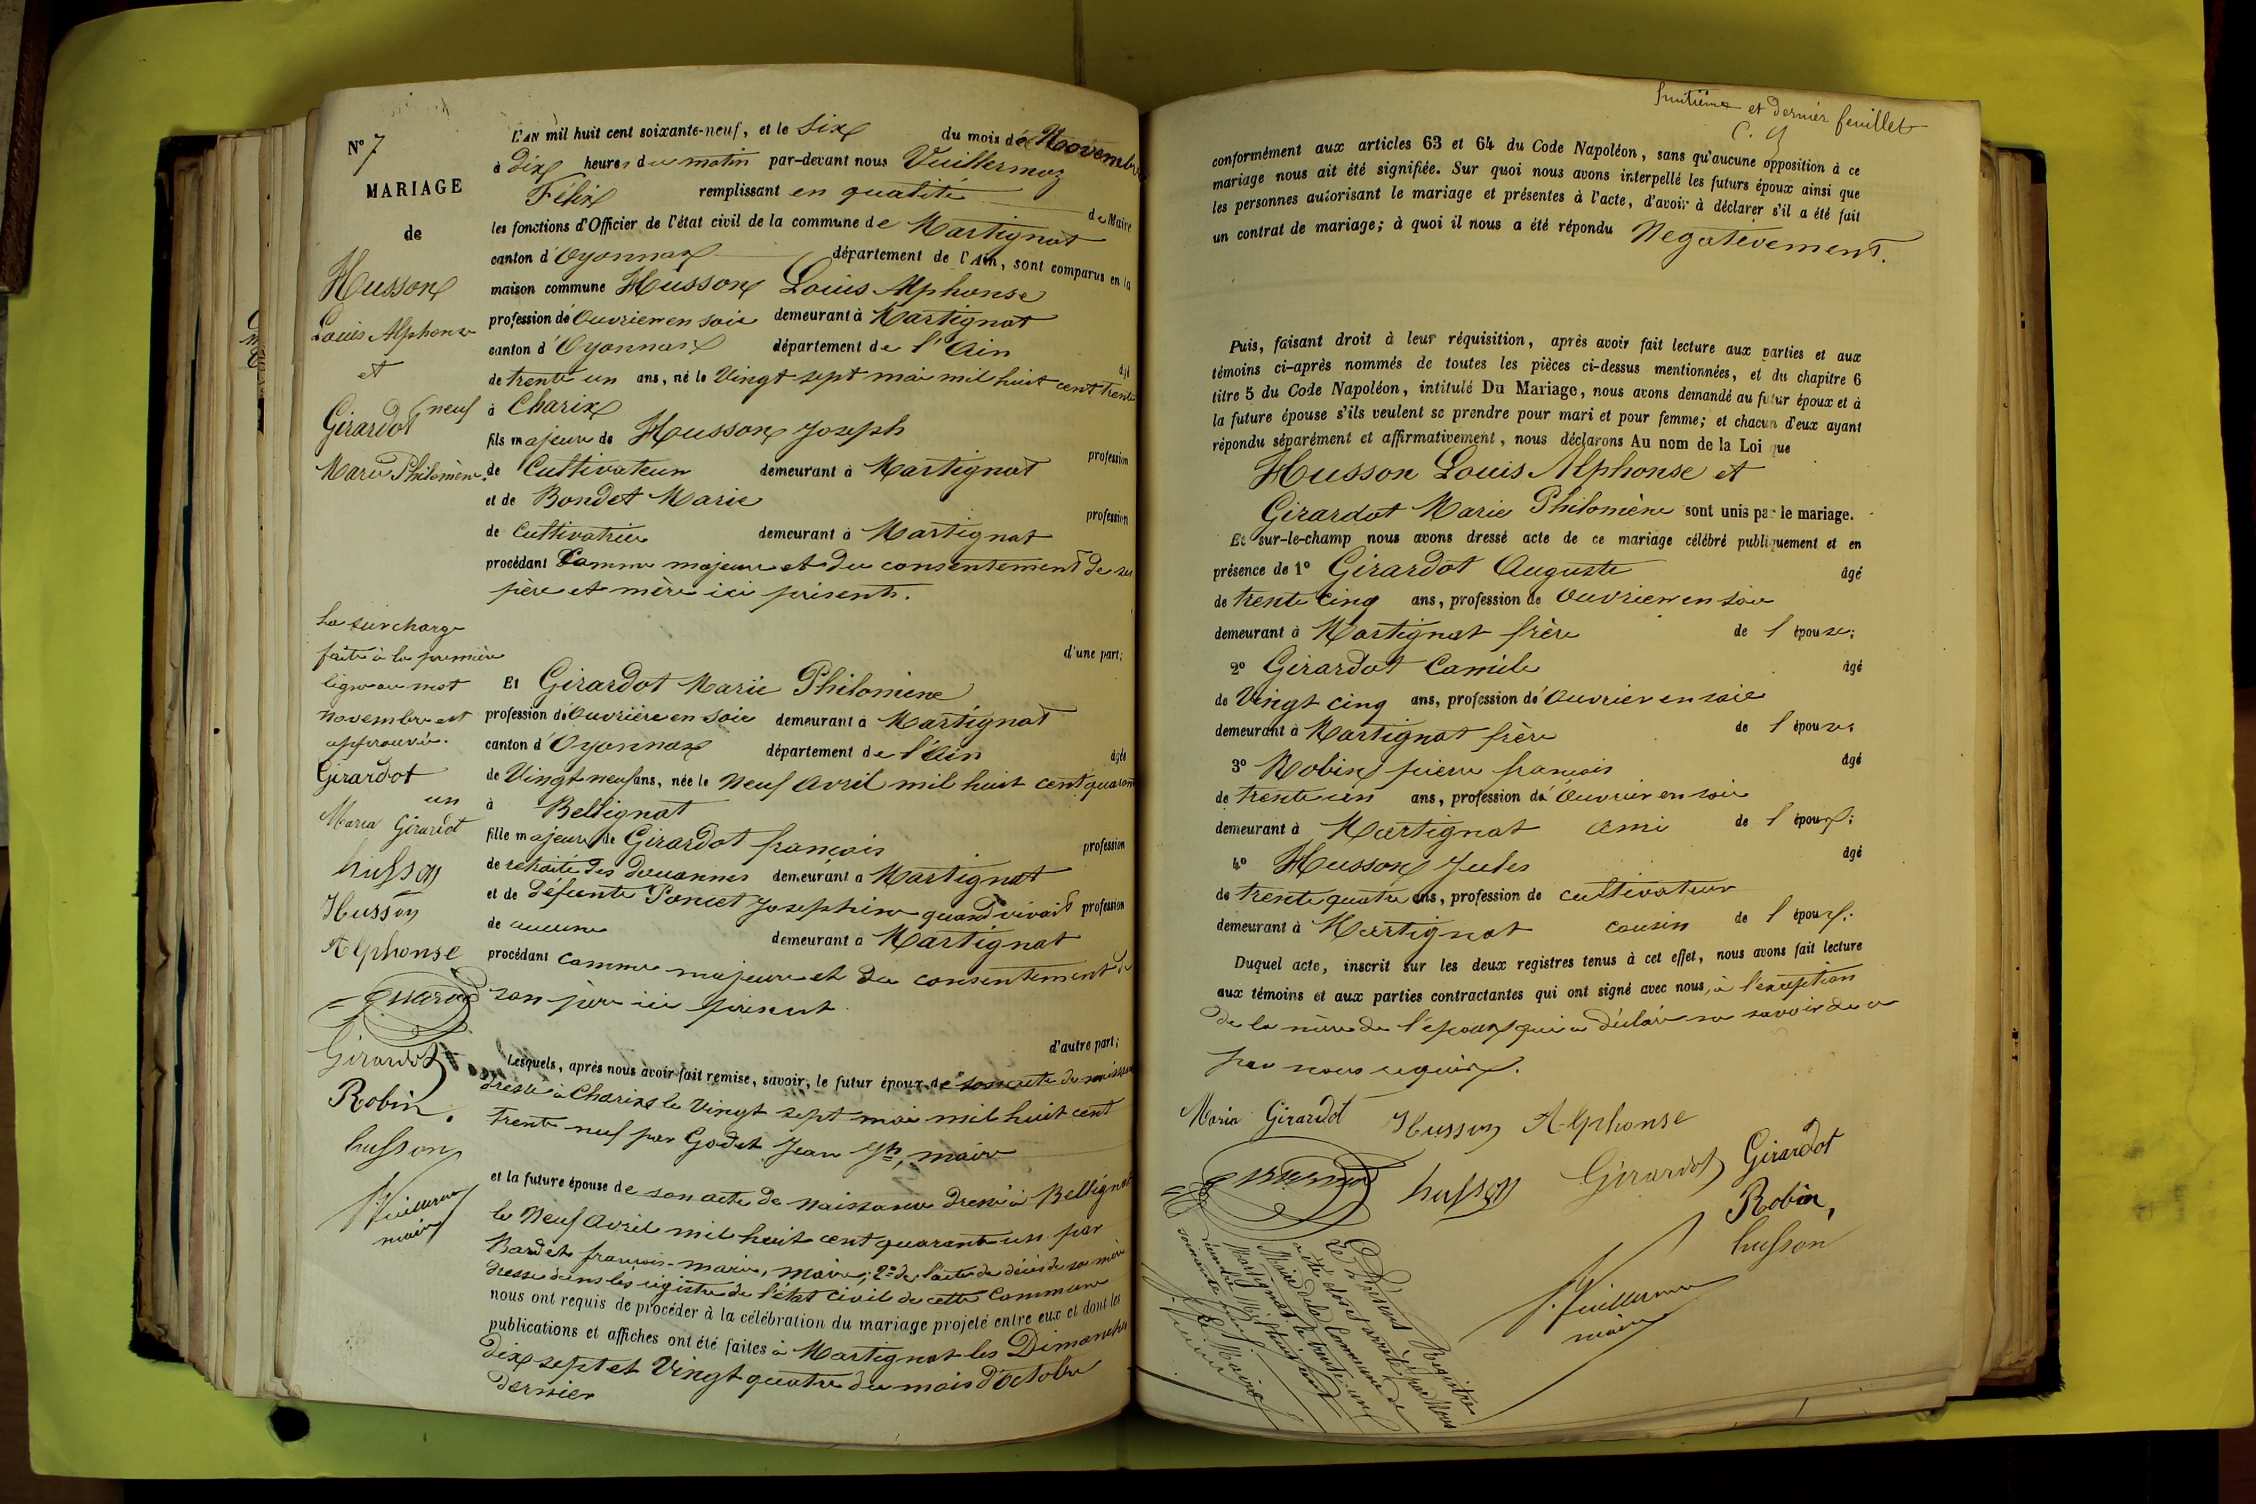 N° 7
MARIAGE
de
Husson
Louis Alphonse
et
Girardot
Marie Philomène.
L'AN mil huit cent soixante-neuf, et le Six du mois de Novembre
à dix heures du matin par-devant nous Vuillermoz
Félix remplissant en qualité de Maire
les fonctions d'Officier de l'état civil de la commune de Martignat
canton d'Oyonnax département de l'Ain, sont comparus en la
maison commune Husson Louis Alphonse
profession de Ouvrier en soie demeurant à Martignat
canton d'Oyonnax département de l'Ain âgé
de trente un ans, né le Vingt sept mai mil huit cent trente
neuf à Charix
fils majeur de Husson Joseph profession
de Cultivateur demeurant à Martignat
et de Bondet Marie profession
de Cultivatrice demeurant à Martignat
procédant Comme majeur et du consentement de ses
père et mère ici présents.
d'une part;
Et Girardot Marie Philomène
profession de Ouvrière en soie demeurant à Martignat
canton d'Oyonnax département de l'Ain âgée
de Vingt-neuf ans, née le Neuf Avril mil huit cent quarante
un à Bellignat
fille majeure de Girardot françois profession
de retraité des douannes demeurant à Martignat
et de défunte Poncet Josephine quand vivait profession
de aucune demeurant à Martignat
procédant comme majeure et du consentement de
son père ici présent
d'autre part;
Lesquels, après nous avoir fait remise, savoir, le futur époux de son acte de naissance
dressé à Charix le Vingt sept mai mil huit cent
trente neuf par Godet Jean Jh, maire
et la future épouse de son acte de naissance dressé à Bellignat
le Neuf Avril mil huit cent quarante un par
Bardet françois-marie, maire; 2° de l'acte de décès de sa mère
dressé dans les régistre de l'état civil de cette Commune
nous ont requis de procéder à la célébration du mariage projeté entre eux et dont les
publications et affiches ont été faites à Martignat les Dimanches
dix sept et Vingt quatre du mois d'Octobre
dernier
La surcharge
faite à la première
ligne au mot
novembre est
approuvée.
Girardot
Maria Girardot
husson
Husson
Alphonse
Girardot
Robin.
husson
F. Vuillermoz
maire
huitième et dernier feuillet
C. G
conformément aux articles 63 et 64 du Code Napoléon, sans qu'aucune opposition à ce
mariage nous ait été signifiée. Sur quoi nous avons interpellé les futurs époux ainsi que
les personnes autorisant le mariage et présentes à l'acte, d'avoir à déclarer s'il a été fait
un contrat de mariage; à quoi il nous a été répondu Negativement.
Puis, faisant droit à leur réquisition, après avoir fait lecture aux parties et aux
témoins ci-après nommés de toutes les pièces ci-dessus mentionnées, et du chapitre 6
titre 5 du Code Napoléon, intitulé Du Mariage, nous avons demandé au futur époux et à
la future épouse s'ils veulent se prendre pour mari et pour femme; et chacun d'eux ayant
répondu séparément et affirmativement, nous déclarons Au nom de la Loi que
Husson Louis Alphonse et
Girardot Marie Philomène sont unis par le mariage.
Et sur-le-champ nous avons dressé acte de ce mariage célébré publiquement et en
présence de 1° Girardot Auguste âgé
de trente cinq ans, profession de Ouvrier en soie
demeurant à Martignat frère de l'épouse;
2° Girardot Camile âgé
de Vingt cinq ans, profession de Ouvrier en soie
demeurant à Martignat frère de l'épouse;
3° Robin pierre françois âgé
de trente un ans, profession de Ouvrier en soie
demeurant à Martignat ami de l'époux;
4° Husson Jules âgé
de trente quatre ans, profession de cultivateur
demeurant à Martignat cousin de l'époux;
Duquel acte, inscrit sur les deux registres tenus à cet effet, nous avons fait lecture
aux témoins et aux parties contractantes qui ont signé avec nous, à l'exception
de la mère de l'époux qui a déclaré ne savoir de ce
par nous requis.
Maria Girardot Husson Alphonse
husson Girardot Girardot
Robin,
husson
F. Vuillermoz
maire
Le Présent Registre
a été clos et arrêté par Nous
Maire de la Commune de
Martignat le trente-un
Décembre Mil huit cent
soixante neuf
Le Maire
F. Vuillermoz